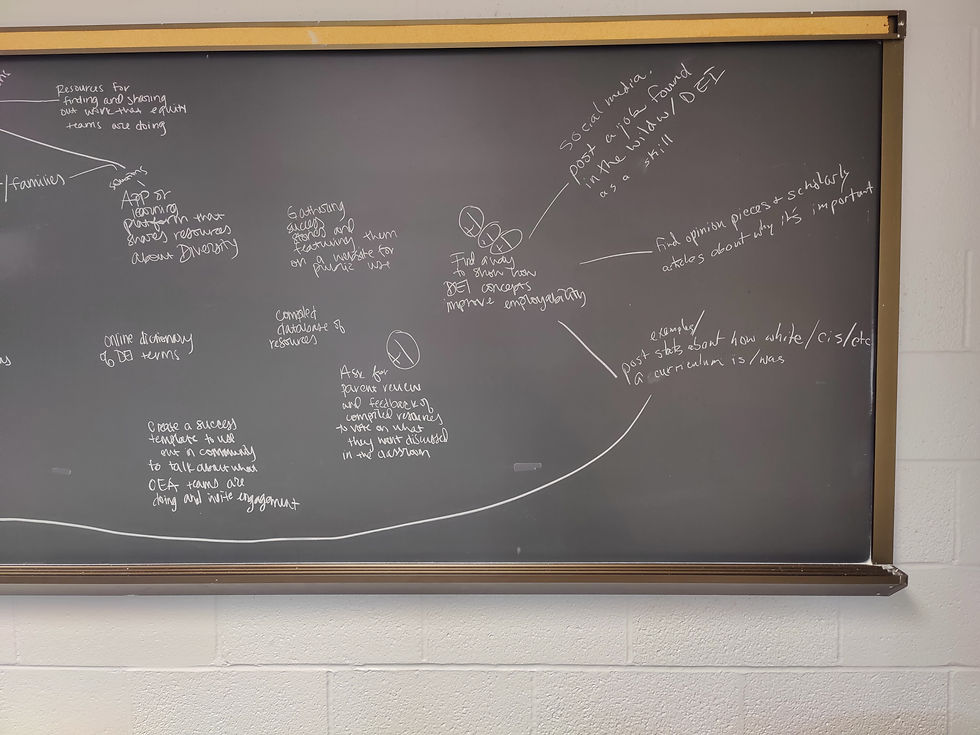 Resources for
finding and sharing
out work that equity
teams are doing
/families
App or
learning
platform that
shares resources
about Diversity
Gathering
success
stories and
featuring them
on a website for
public use
+1
+1
+1
Find a way
to show how
DEI concepts
improve employability
social media.
post a job found
in the wild w/ DEI
as a skill
find opinion pieces + scholarly
articles about why its important
examples/
post stats about how white/cis/etc
a curriculum is/was
online dictionary
of DEI terms
Compiled
database of
resources
+1
Ask for
parent review
and feedback of
compiled resources
to vote on what
they want discussed
in the classroom
Create a success
template to use
out in community
to talk about what
OEA teams are
doing and invite engagement